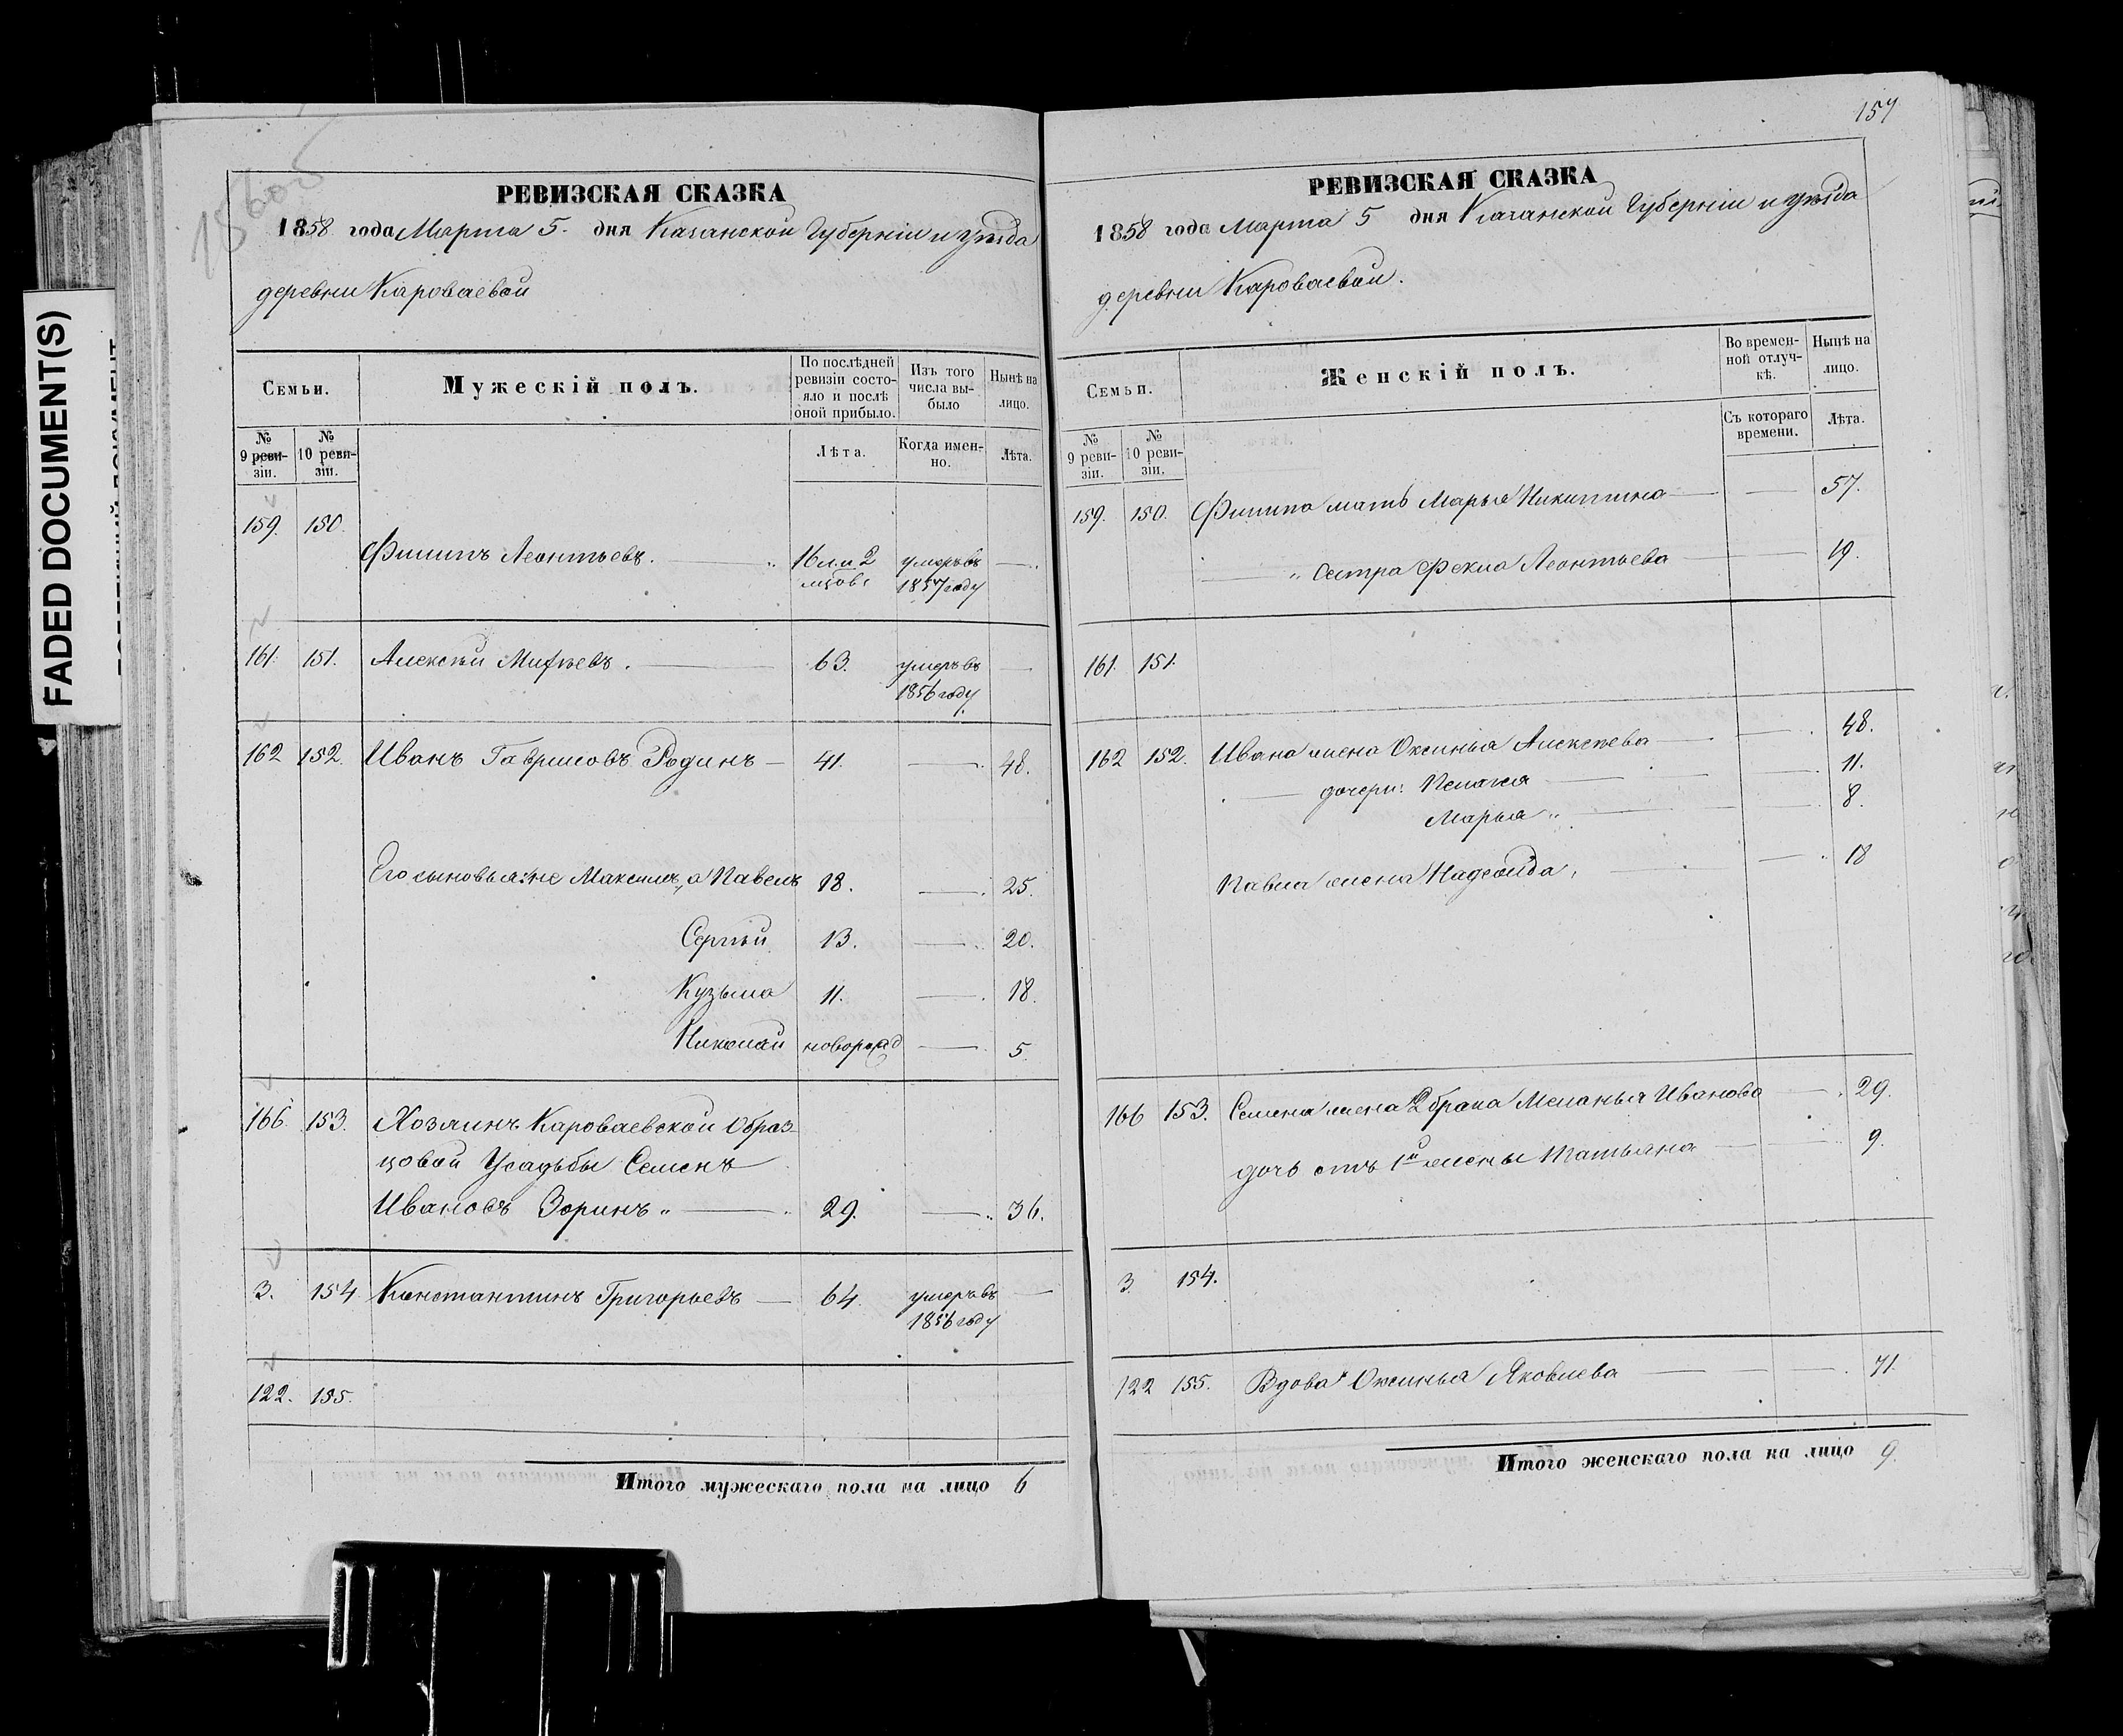 FADED DOCUMENT(S)
РЕВИЗСКАЯ СКАЗКА
1858 года Марта 5. дня Казанской Губерніи и уѣзда
деревни Короваевой
Семьи.
Мужескій полъ.
По послѣдней ревизіи состояло и послѣ оной прибыло.
Изъ того числа выбыло
Нынѣ на лицо.
№ 9 ревизіи.
№ 10 ревизіи.
Лѣта.
Когда именно.
Лѣта.
159. 150.
Филипъ Леонтьевъ. 16 л. и 2 умеръ въ
мцовъ 1857 году
161. 151. Алексѣй Михѣевъ. 63. умеръ въ
1856 году
162 152. Иванъ Гавриловъ Родинъ 41. 48.
Его сыновья: не Максимъ, а Павелъ 18. 25.
Сергѣй 13. 20.
Кузьма 11. 18.
Николай поворожд 5.
166. 153. Хозяинъ Короваевской Образ-
цовой Усадьбы Семенъ
Ивановъ Зоринъ 29. 36.
3. 154 Константинъ Григорьевъ 64. умеръ въ
1856 году
122. 155.
Итого мужескаго пола на лицо 6
157
РЕВИЗСКАЯ СКАЗКА
1858 года Марта 5 дня Казанской Губерніи и уѣзда
деревни Короваевой.
Семьи.
Женскій полъ.
Во временной отлучкѣ.
Нынѣ на лицо.
№ 9 ревизіи.
№ 10 ревизіи.
Съ котораго времени.
Лѣта.
159. 150. Филипа мать Марья Никитина 57.
" Сестра Фекла Леонтьева 19.
161. 151.
162 152. Ивана жена Оксинья Алексѣева 48.
дочери: Пелагея 11.
Марья 8.
Павла жена Надежда, 18
166 153. Семена жена 2 брака Меланья Иванова 29.
дочь отъ 1й жены Татьяна 9.
3 154.
122 155. Вдова Оксинья Яковлева 71
Итого женскаго пола на лицо 9.